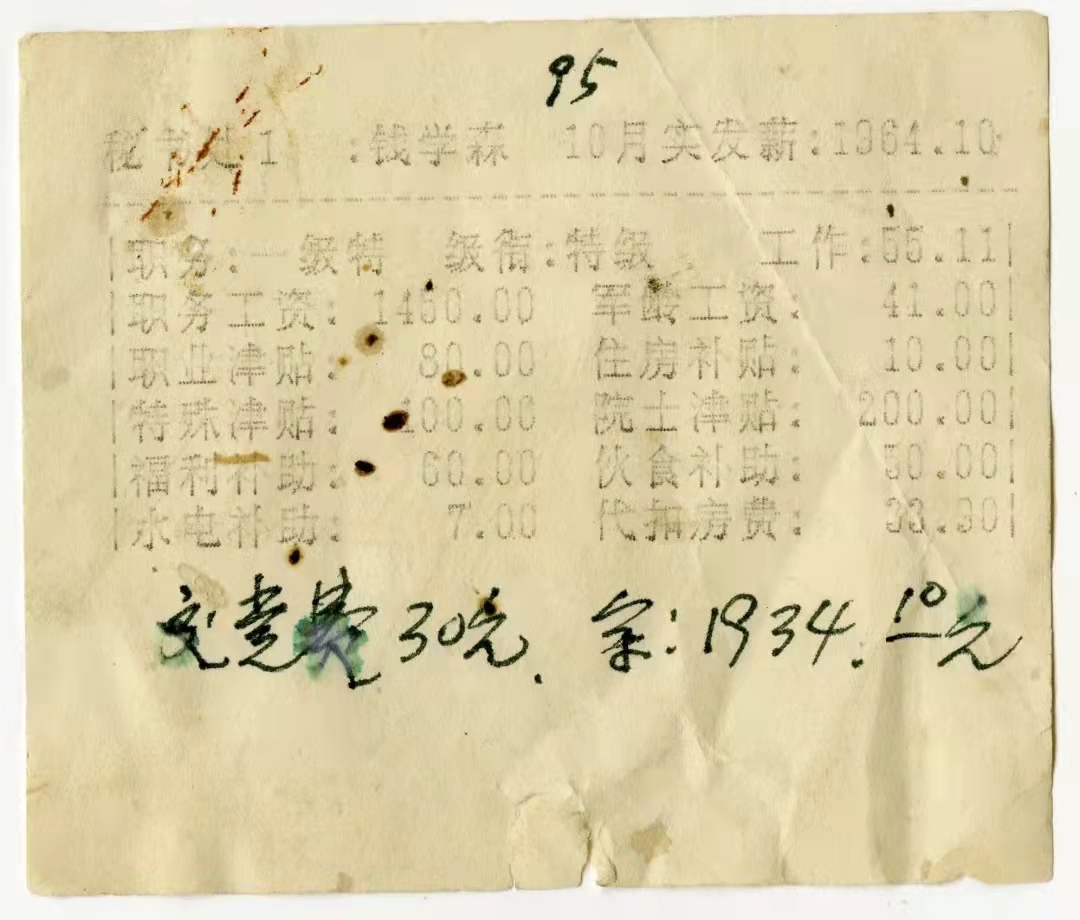 95
秘书处1 :钱学森 10月实发薪:1964.10
职务:一级特 级衔:特级 工作:55.11
职务工资: 1450.00 军龄工资: 41.00
职业津贴: 80.00 住房补贴: 10.00
特殊津贴: 100.00 院士津贴: 200.00
福利补助: 60.00 伙食补助: 50.00
水电补助: 7.00 代扣房费: 33.90
交党费30元. 余:1934.10元